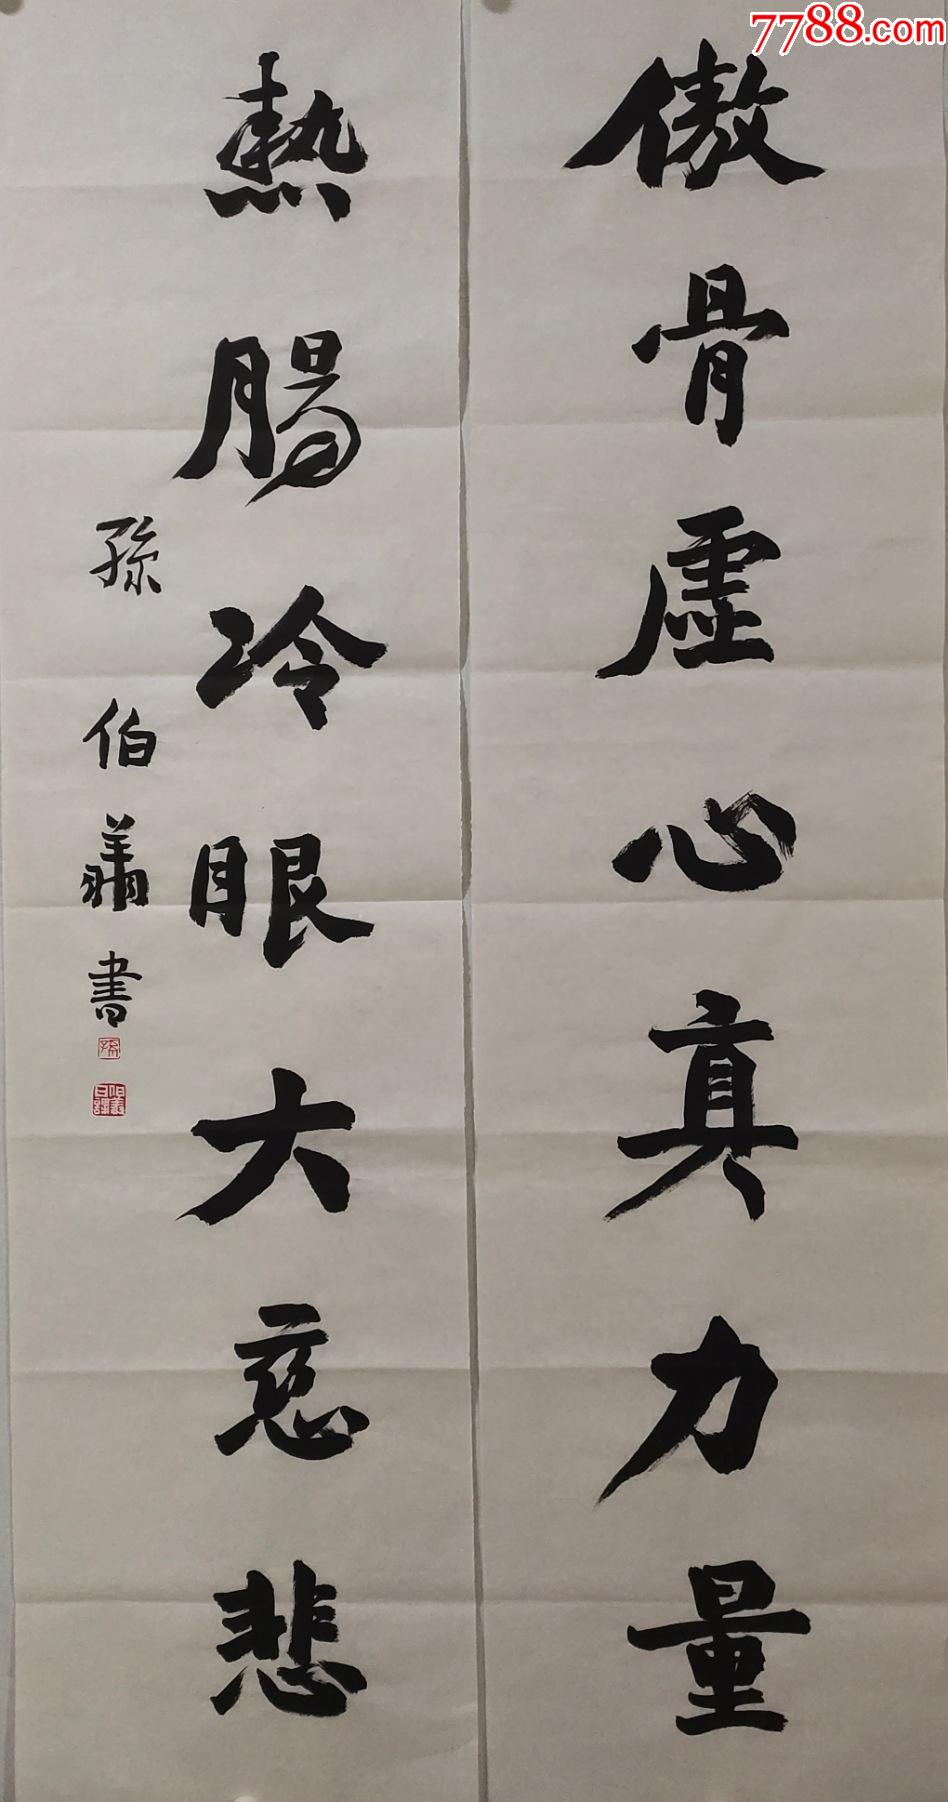 7788.com
傲骨虚心真力量
熱腸冷眼大慈悲
孫伯翔書